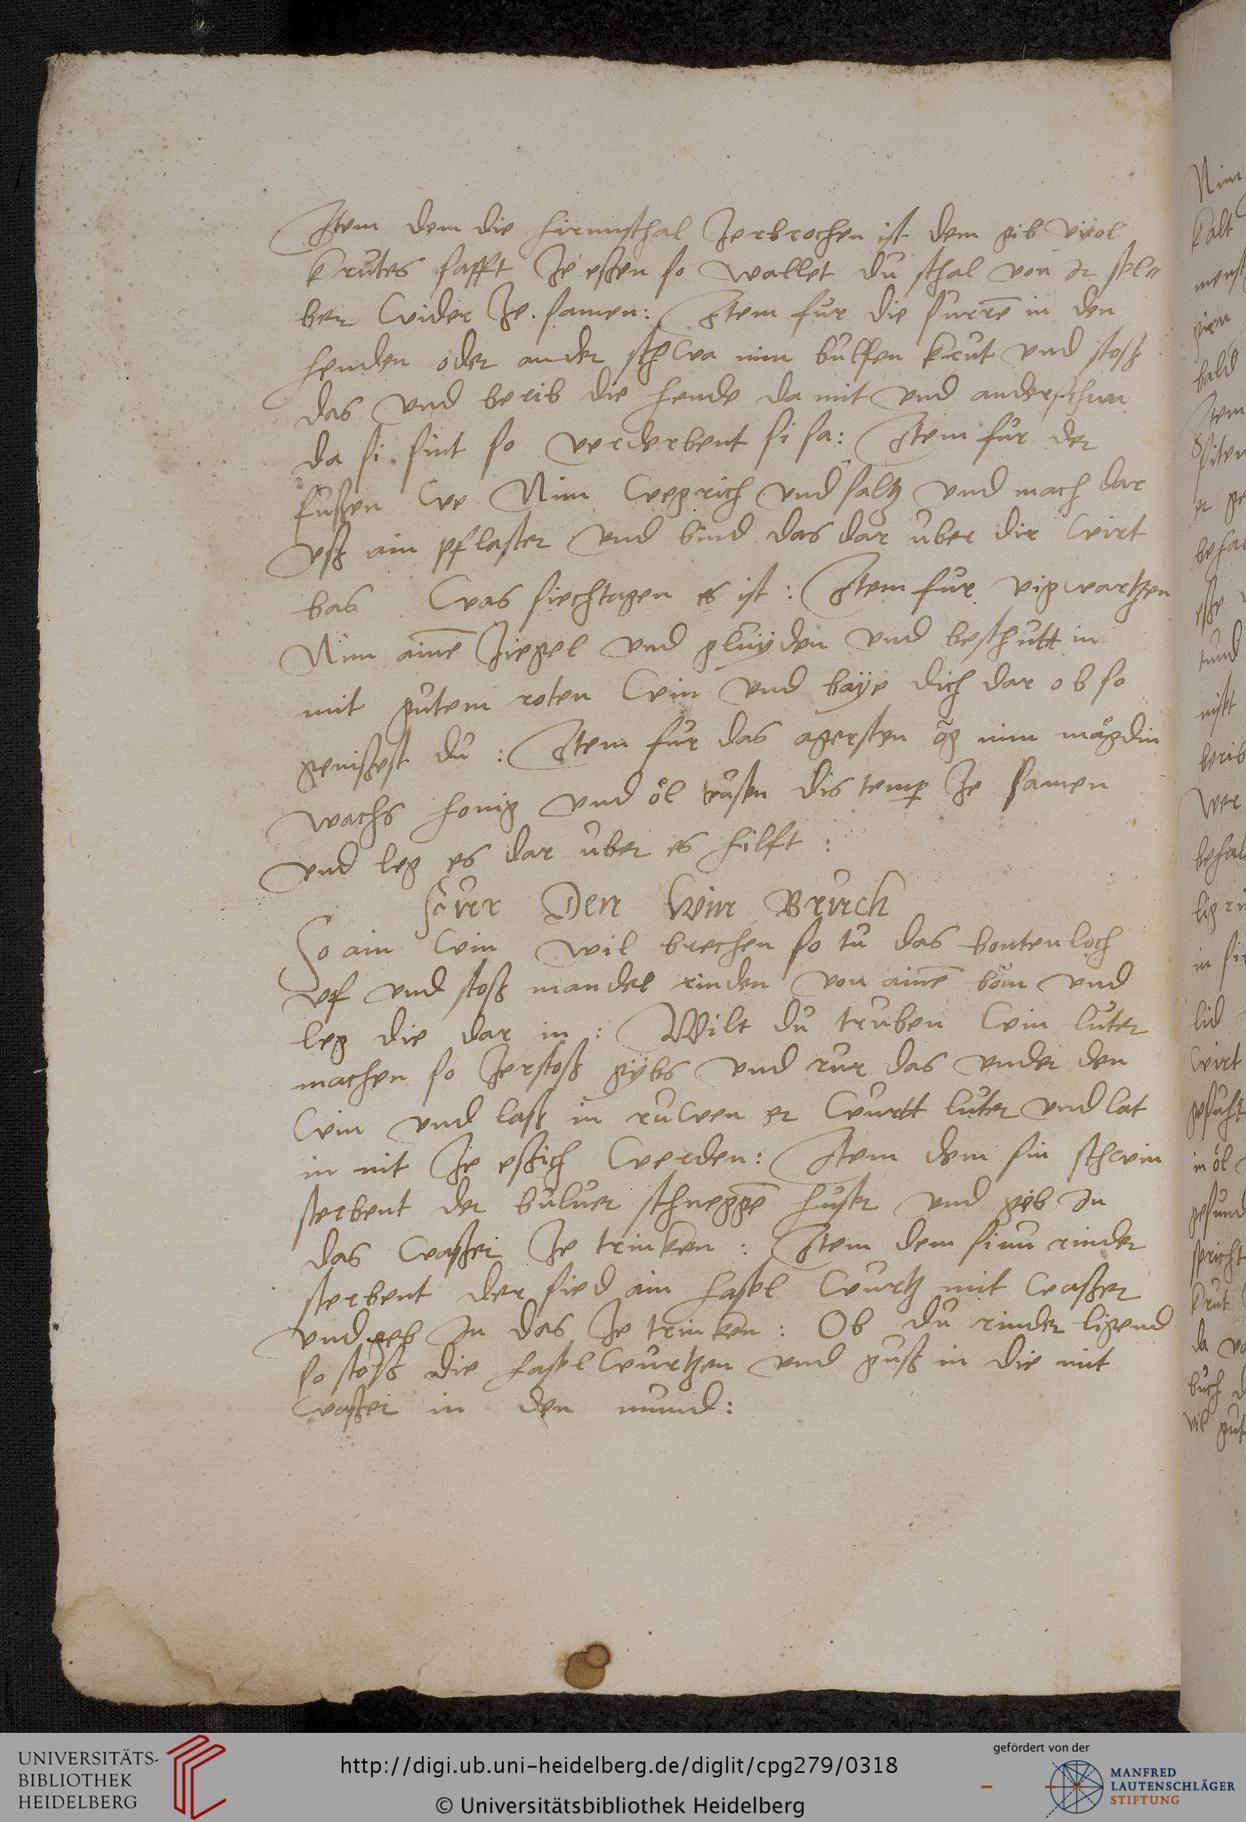 Item dem die hirnnschal zerbrochen ist dem gib vÿol
krutes safft ze eßen so wallet du schal von ir sel=
ber wider ze samen: Item fur die surrē in den
henden oder ander schwa nim bulsen krut vnd stoß
das vnd berib die hende da mit vnd anderschwa
da si sint so verderbent si sa: Item fur der
fußen we Nim wegrich vnd saltz vnd mach dar
vß ain pflaster vnd bind das dar uber dir wirt
bas was siechtagen es ist: Item fur vigwartzen
Nim ainē ziegel vnd gluyden vnd beschutt in
mit gutem roten win vnd baÿe dich dar ob so
genißest du: Item fur das agersten og nim mågdin
wachs honig vnd öl trusen distemper ze samen
vnd leg es dar uber es hilft:
Furr Den Win Bruch
So ain win wil brechen so tu das bontenloch
vf vnd stoß mandel rinden von ainē bom vnd
leg die dar in: Wilt du truben win luter
machen so zerstoß gÿbs vnd rur das vnder den
win vnd laß in ruwen er wurtt luter vnd lat
in nit ze eßich werden: Item dem sin schwin
sterbent der buluer schneggē huser vnd geb in
das waßer ze trinken: Item dem sinu rinder
sterbent der sied ain hasel wurtz mit waßer
vnd geb in das ze trinken: Ob du rinder ligend
so stoß die haselwurtzen vnd guß in die mit
waßer in den mund:
Nim
kalt
bald
Item
lid
wirt
in öl
gesund
spricht
krut
buch
vil gut
UNIVERSITÄTS-
BIBLIOTHEK
HEIDELBERG
http://digi.ub.uni-heidelberg.de/diglit/cpg279/0318
© Universitätsbibliothek Heidelberg
gefördert von der
MANFRED
LAUTENSCHLÄGER
STIFTUNG